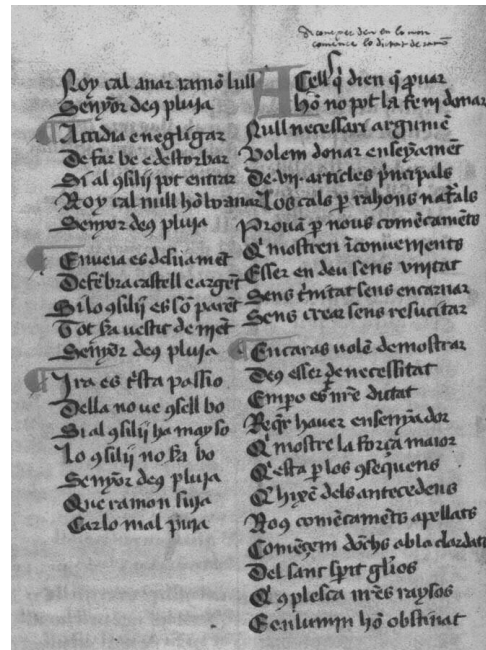 Noy cal anar ramō lull
Senyōr deꝯ pluia
Accidia e negligar
De far be e destorbar
Si al ꝯsilij pot entrar
Noy cal null hō lo anar
Senyōr deꝯ pluia
Enveia es desijamēt
De fēbra castell e argēt
Si lo ꝯsilij es sō parēt
Tot fa vestit de mēt
Senyōr deꝯ pluia
Ira es t̄sta passio
Della no ve ꝯsell bo
Si al ꝯsilij ha mayso
Lo ꝯsilij no fa bo
Senyōr deꝯ pluia
Que ramon
Car lo mal puia
comēce lo dictat de ramō
Acell q̄ dien q̄ ꝓvar
hō no pot la fe ni donar
Null necessari argumē
Volem donar enseyamēt
De .vii. articles p̄ncipals
Los cals ꝑ rahons nat̄als
Provā ꝑ nous comēcamēts
Q̄ mostren īconvenients
Esser en deu sens unitat
Sens t̄nitat sens encarnar
Sens crear sens resucitar
Encaras volē demostrar
Deꝯ esser de necessitat
Empo es mr̄e dictat
Req̄r haver ensenyador
Q̄ mostre la força maior
Q̄ esta ꝑ los ꝯseq̄uens
dels antecedens
Noꝯ comēcamēts apellats
Comēcem dōchs ab la clardat
Del sant sp̄it gl̄ios
Q̄ ꝯplesca nr̄es raysos
E enlumin hō obstinat